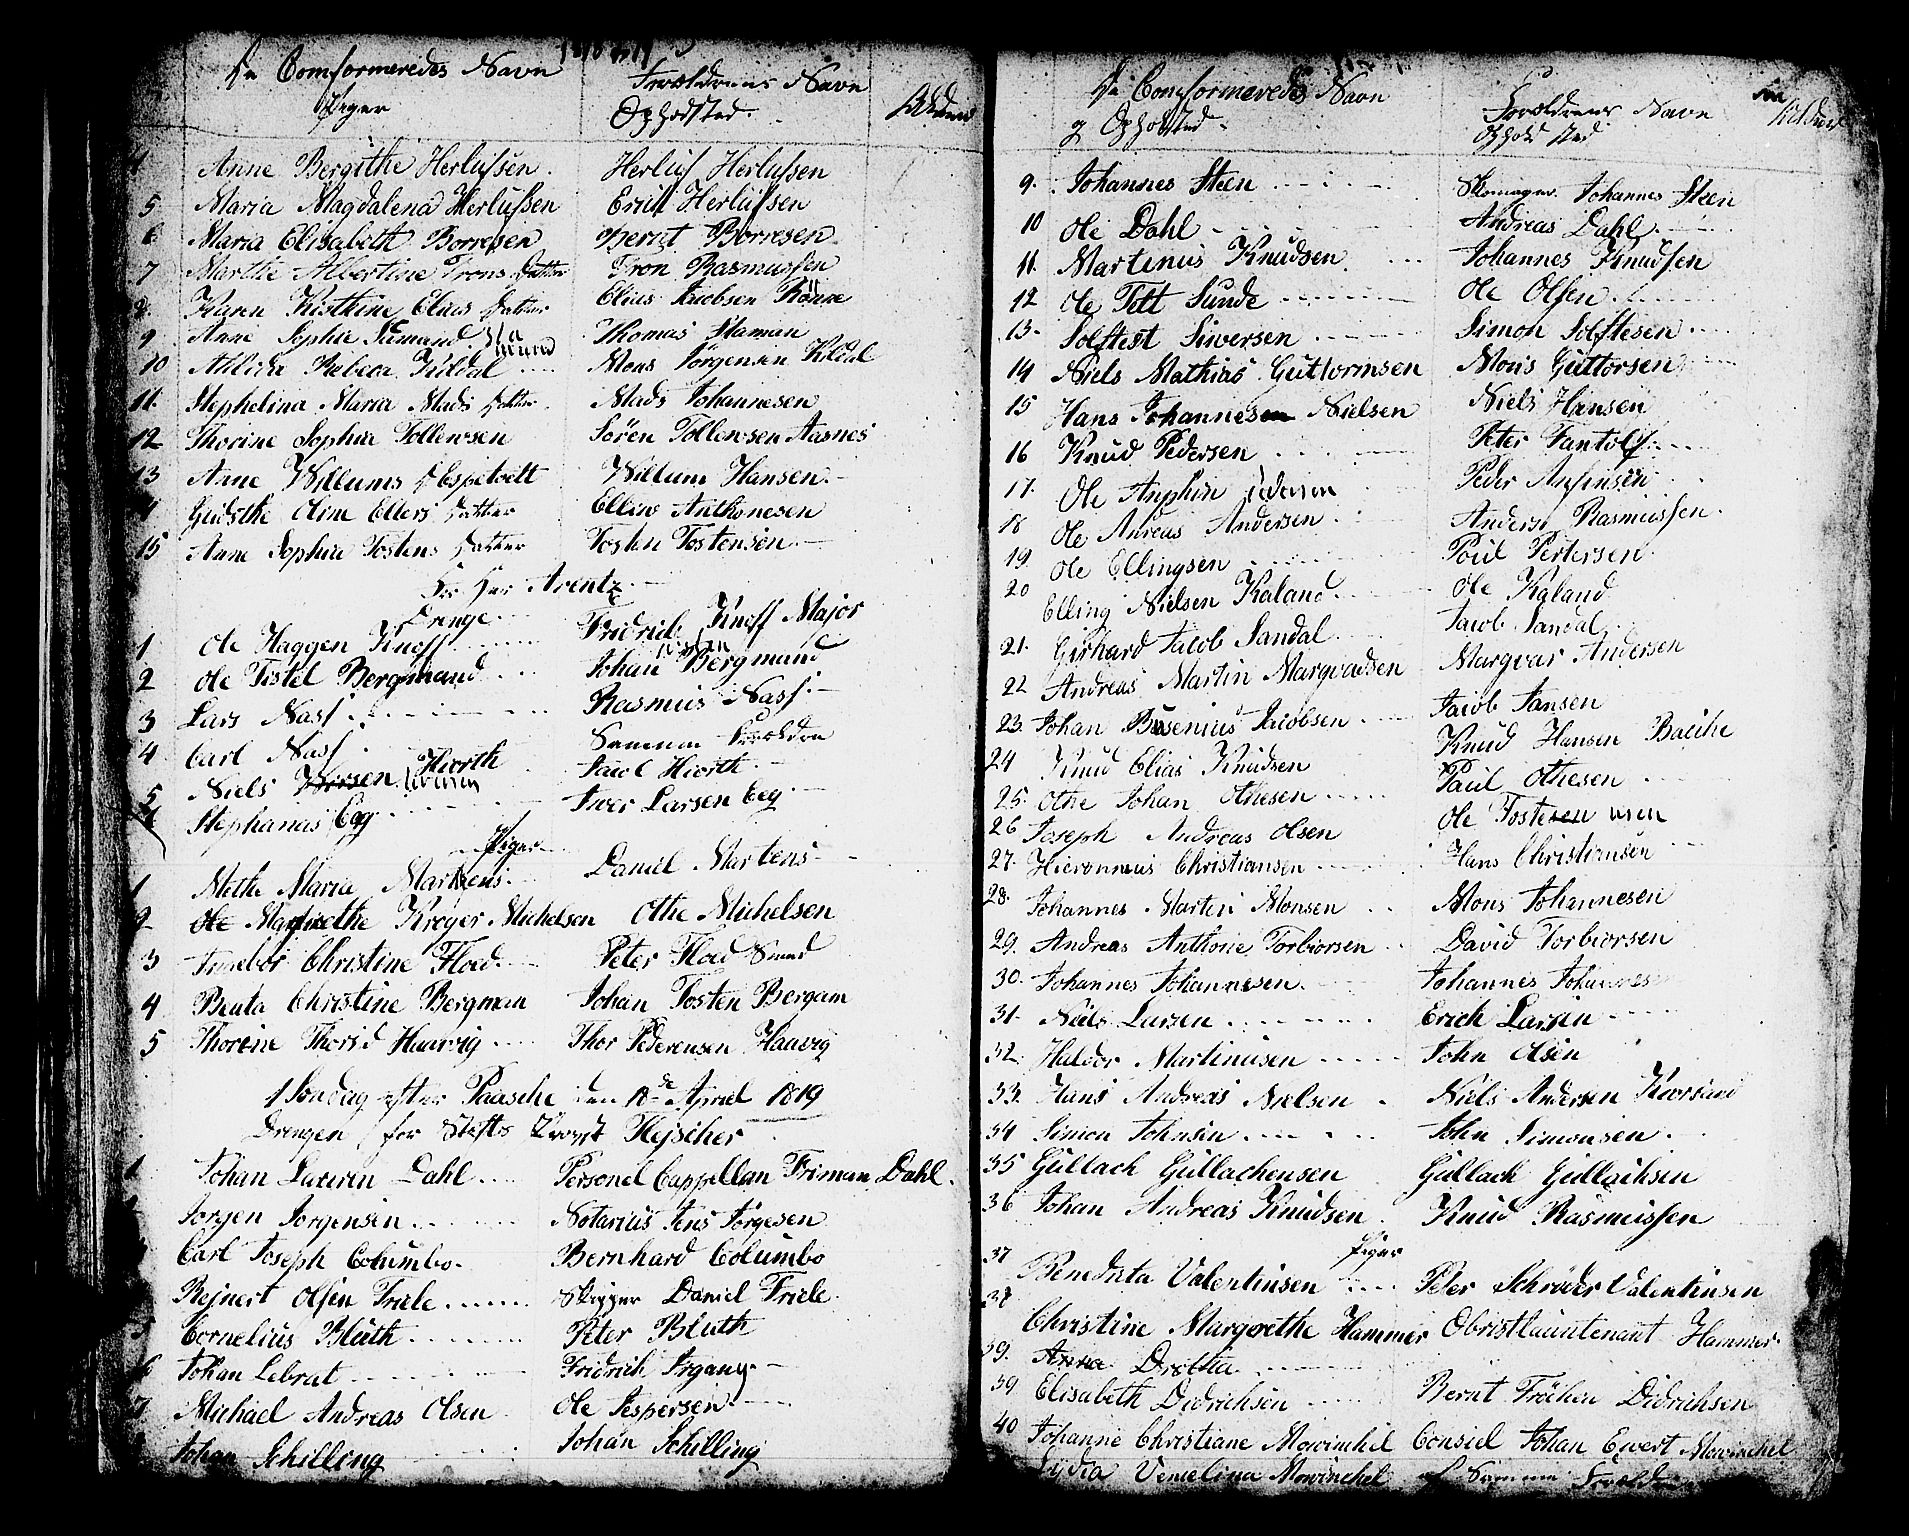 De Comformeredes Navn
Piger
Forældrenes Navn
Opholdsted.
4 Anne Bergithe Herlufsen. Herluf Herlufsen
5 Maria Magdalena Herlufsen Erik Herlufsen
6 Maria Elisabeth Borresen Bernt Borresen
7 Marthe Albertine Trons Datter Tron Rasmussen
8 Karen Kistine Elias Datter Elias Jacobsen Rönne
9 Anne Sophie Stamand Thomas Staman
10 Ahlida Rebeca Kuldal Mons Jörgensen Kldal
11. Stephelina Maria Mads Datter Mads Johannesen
12 Thorine Sophia Tollewsen Sören Tollewsen Aasnes
13 Anne Willums Despetvett Willum Hansen.
14 Gudsthe Oline Ellers Datter Ellew Anthonesen
15 Anne Sophia Tostens Datter Tosten Tostensen
For Her Arentz.
Drenge.
1 Ole Haggen Knoff Fridrich Knoff Major
2 Ole Tistel Bergmand Johan Bergmand
3 Lars Nass Rasmus Nass.
4 Carl Nass. Samme Forældre
5 Niels Iversen Hiorth Jacob Hiorth.
Stephanas Eeg Iver Larsen Eeg.
Piger
1 Methe Maria Martens. Daniel Martens
2 Ole Magrethe Krøger Michelsen Othe Michelsen
3 Ingebor Christine Floed. Peter Floed Smed
4 Beata Christine Bergman Johan Tosten Bergam
5 Thorine Thorsd Haavig Thor Pedersen Haavig
1 Söndag efter Paasche den 18de April 1819
Drengen for Stifts Provst Flejscher
1 Johan Laurin Dahl Personel Cappellan Friman Dahl.
Jorgen Jorgensen Notarius Jens Jörgesen
Carl Joseph Columbo. Bernhard Columbo
Rejnert Olsen Friele Skipper Daniel Friele.
5 Cornelius Bluth Peter Bluth
6 Johan Lebrat Fridrich Irgang.
7 Michael Andreas Olsen Ole Jespersen.
Johan Schilling Johan Schilling
De Comformeredes Navn
og Opholsted.
Forældrenes Navn
Ophold sted
9. Johannes Steen Skomager Johannes Steen
10 Ole Dahl Andreas Dahl
11. Martinus Knudsen Johannes Knudsen
12 Ole Tott Sunde Ole Olsen
13. Solftest Siversen Simon Solftesen
14 Niels Mathias Guttormsen Mons Guttorsen
15 Hans Johannesen Nielsen Niels Hansen
16 Knud Pedersen Peter Fantoft
17. Ole Anphin Pedersen Peder Anfinsen
18 Ole Andreas Andersen Anders Rasmussen.
19. Ole Ellingsen Poul Pettersen
20 Elling Nielsen Kaland Ole Kaland
21. Girhard Jacob Sandal Jacob Sandal
22 Andreas Martin Margvadsen Margvar Andersen
23. Johan Busenius Jacobsen Jacob Jansen
24 Knud Elias Knudsen Knud Hansen Bache
25. Othe Johan Othesen Paul Othesen
26 Joseph Andreas Olsen Ole Tostensen
27. Hieronmus Christiansen Hans Christiansen
28. Johannes Martin Monsen Mons Johannesen
29. Andreas Anthonie Torbiorsen David Torbiorsen
30. Johannes Johannesen. Johannes Johannesen
31. Niels Larsen Erich Larsen
32. Haldor Martinusen John Olsen
33. Hans Andreas Nielsen Niels Andersen Korsand
34 Simon Johnsen John Simonsen.
35 Gullach Gullachensen Gullach Gullachsen
36 Johan Andreas Knudsen Knud Rasmussen
Piger
37 Benedicta Valentinsen Peter Schröder Valentinsen
38 Christine Margrethe Hammer Obristlauntenant Hammer.
39. Anna Drothia
39 Elisabeth Didrichsen Bernt Tröchen Didrichsen
40 Johanne Christiane Mowinchel Consul Johan Ewert Mowinchel
Lydia Vencelina Mowinchel af Samme Forældre